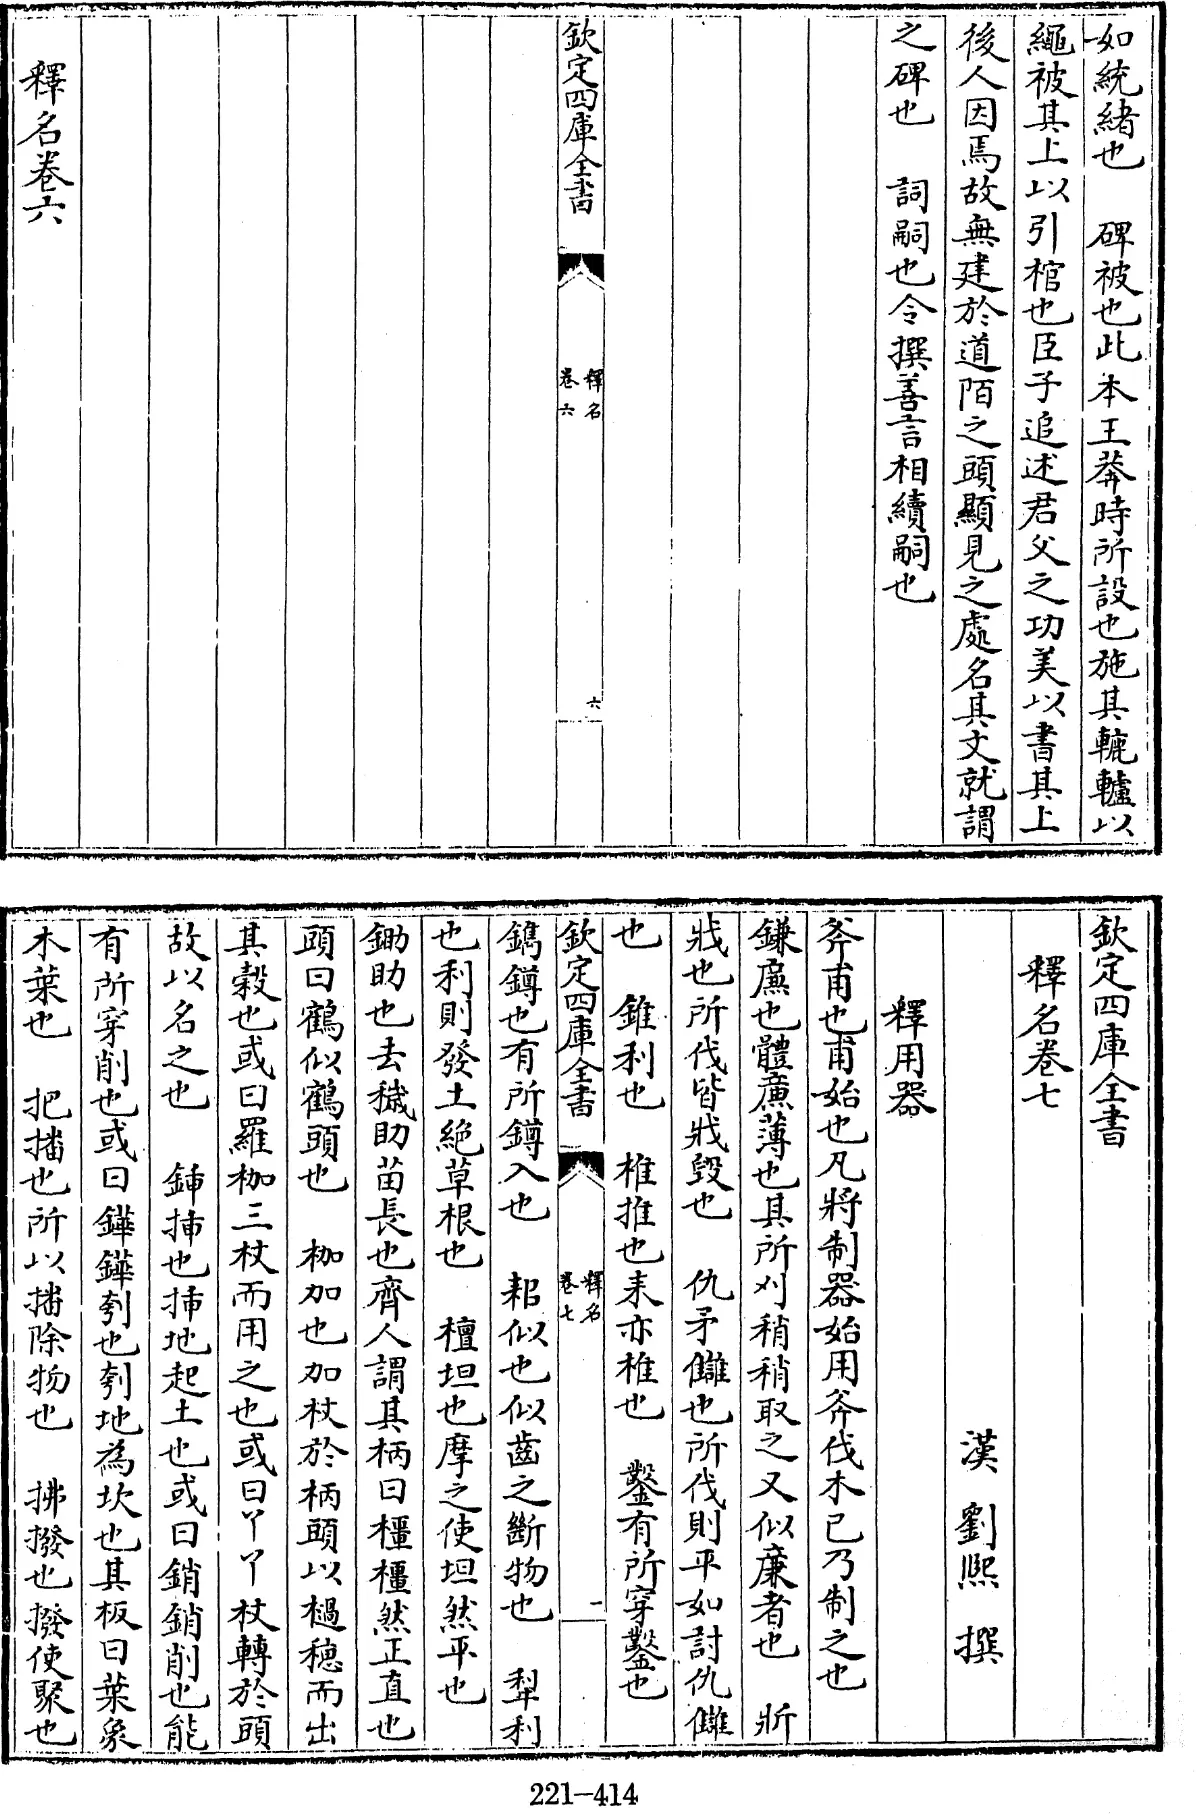 如統緒也　碑被也此本王莽時所設也施其轆轤以
繩被其上以引棺也臣子追述君父之功美以書其上
後人因焉故無建於道陌之頭顯見之處名其文就謂
之碑也　詞嗣也令撰善言相續嗣也
欽定四庫全書
釋名
卷六
六
釋名卷六
欽定四庫全書
釋名卷七
漢　劉熙　撰
釋用器
斧甫也甫始也凡將制器始用斧伐木已乃制之也
鎌廉也體廉薄也其所刈稍稍取之又似廉者也　斨
戕也所伐皆戕毀也　仇矛讎也所伐則平如討仇讎
也　錐利也　椎推也耒亦椎也　鑿有所穿鑿也
欽定四庫全書
釋名
卷七
一
鐫鐏也有所鐏入也　耜似也似齒之斷物也　犁利
也利則發土絶草根也　檀坦也摩之使坦然平也
鋤助也去穢助苗長也齊人謂其柄曰橿橿然正直也
頭曰鶴似鶴頭也　枷加也加杖於柄頭以檛穂而出
其穀也或曰羅枷三杖而用之也或曰丫丫杖轉於頭
故以名之也　鍤揷也揷地起土也或曰銷銷削也能
有所穿削也或曰鏵鏵刳也刳地為坎也其板曰葉象
木葉也　把播也所以播除物也　拂撥也撥使聚也
221-414